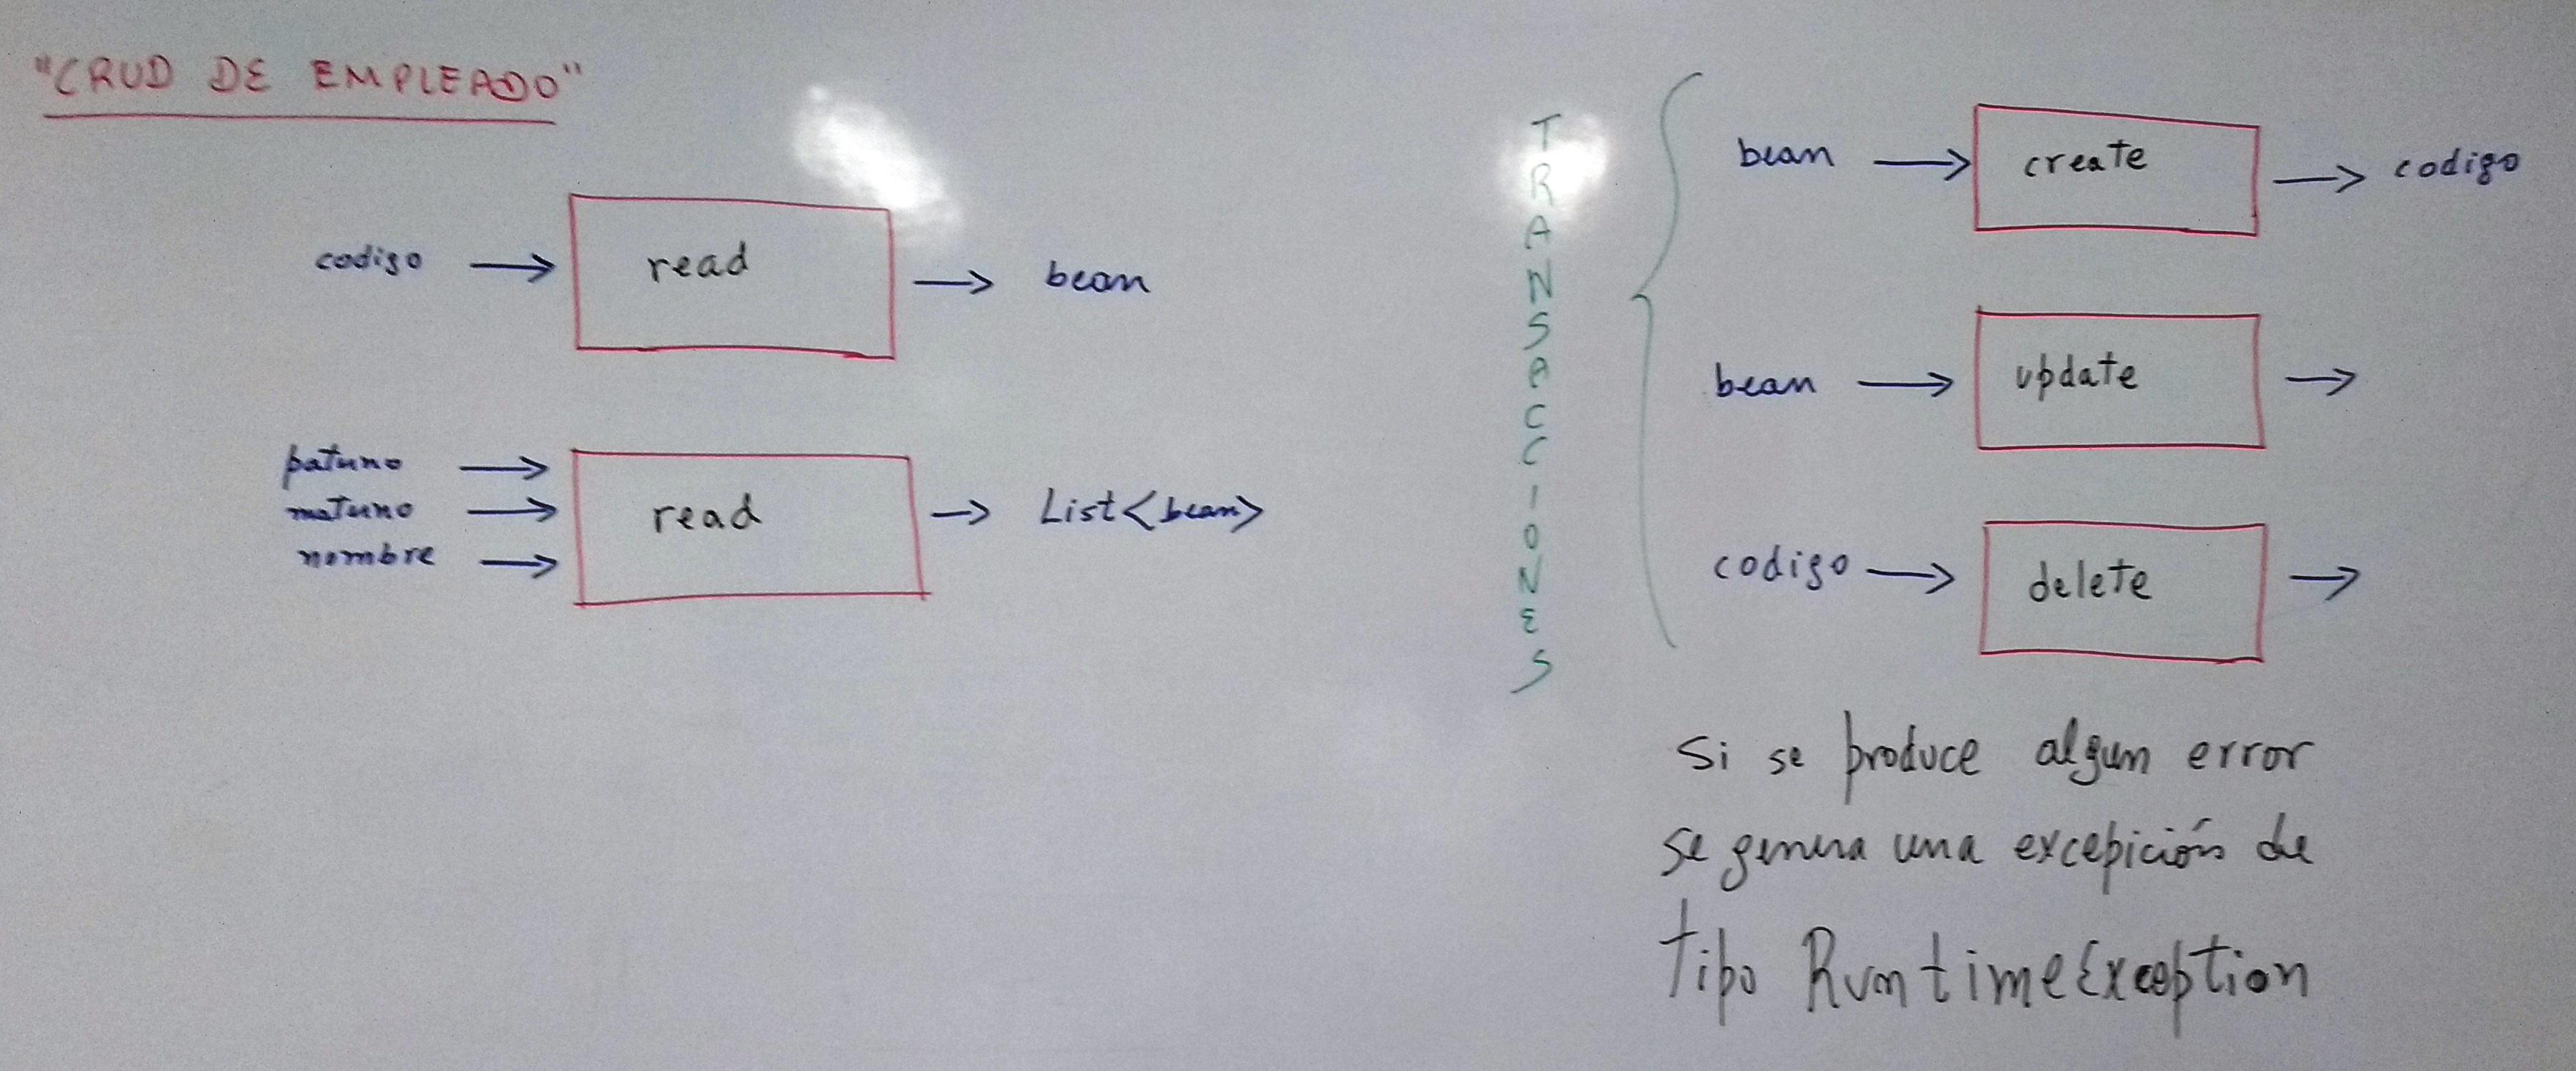 "CRUD DE EMPLEADO"
codigo → read → bean
paterno →
materno → read → List<bean>
nombre →
TRANSACCIONES
bean → create → codigo
bean → update →
codigo → delete →
Si se produce algun error
se genera una excepición de
tipo RuntimeException